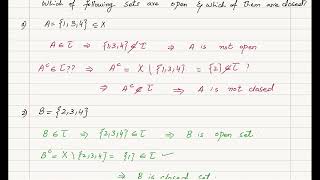 Which of following sets are open & which of them are closed?
1) A = {1,3,4} ⊆ X
A ∈ τ ⇒ {1,3,4} ∉ τ ⇒ A is not open
Aᶜ ∈ τ ?? ⇒ Aᶜ = X \ {1,3,4} = {2} ∉ τ ?
⇒ Aᶜ ∉ τ ⇒ A is not closed
2) B = {2,3,4}
B ∈ τ ⇒ {2,3,4} ∈ τ ⇒ B is open set
Bᶜ = X \ {2,3,4} = {1} ∈ τ ✓
⇒ B is closed set.